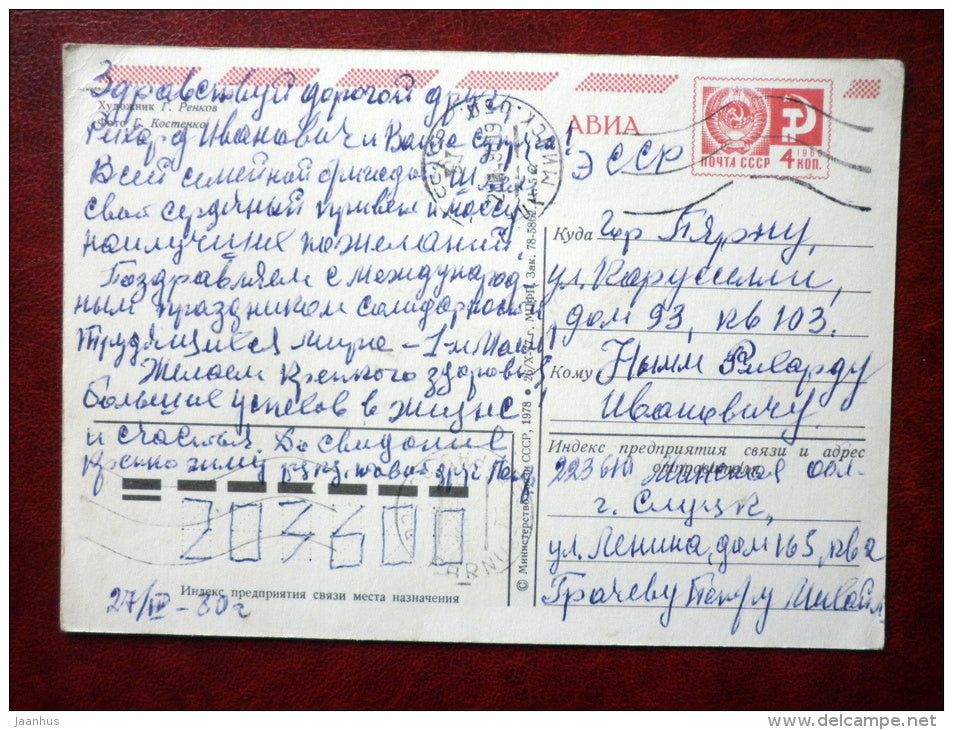 Здравствуй дорогой друг
Художник Г. Ренков
Фото Г. Костенко
Рихард Иванович и Ваша супруга!
Всей семейной бригадой шлем
свой сердечный привет и массу
наилучших пожеланий
Поздравляем с международ
ным праздником солидарности
трудящихся мира – 1-м Мая,
Желаем крепкого здоровья,
больших успехов в жизне
и счастья. До свидания
крепко жму руку, твой друг
27/IV – 80 г
АВИА
ПОЧТА СССР
1966
4 КОП.
Э ССР
Куда гор Пярну,
ул. Каруселли,
дом 93, кв 103.
Кому Нымм Рихарду
Ивановичу
Индекс предприятия связи и адрес
отправителя
223610 Минская обл.
г. Слуцк,
ул. Ленина, дом 163, кв 2
Грачеву Петру Михайл
Индекс предприятия связи места назначения
© Министерство связи СССР, 1978 ● 26/X-77 г. МПФГ. Зак. 78-5862.
jaanhus
www.delcampe.net